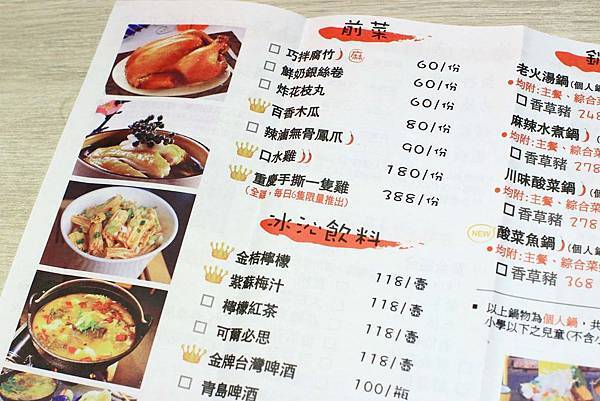 前菜
巧拌腐竹 麻 60/份
鮮奶銀絲卷 60/份
炸花枝丸 60/份
百香木瓜 80/份
辣滷無骨鳳爪 90/份
口水雞 180/份
重慶手撕一隻雞 388/份
(全雞，每日6隻限量推出)
冰沁飲料
金桔檸檬 118/壺
紫蘇梅汁 118/壺
檸檬紅茶 118/壺
可爾必思 118/壺
金牌台灣啤酒 100/瓶
青島啤酒
鍋
老火湯鍋(個人鍋
•均附:主餐、綜合菜
香草豬 248
麻辣水煮鍋 (個人
•均附:主餐、綜合菜
香草豬 278
川味酸菜鍋 (個
•均附:主餐、綜合菜
香草豬 278
NEW
酸菜魚鍋 (個人
•均附:主餐、綜合
香草豬 368
以上鍋物為個人鍋，共
小學以下之兒童(不含小